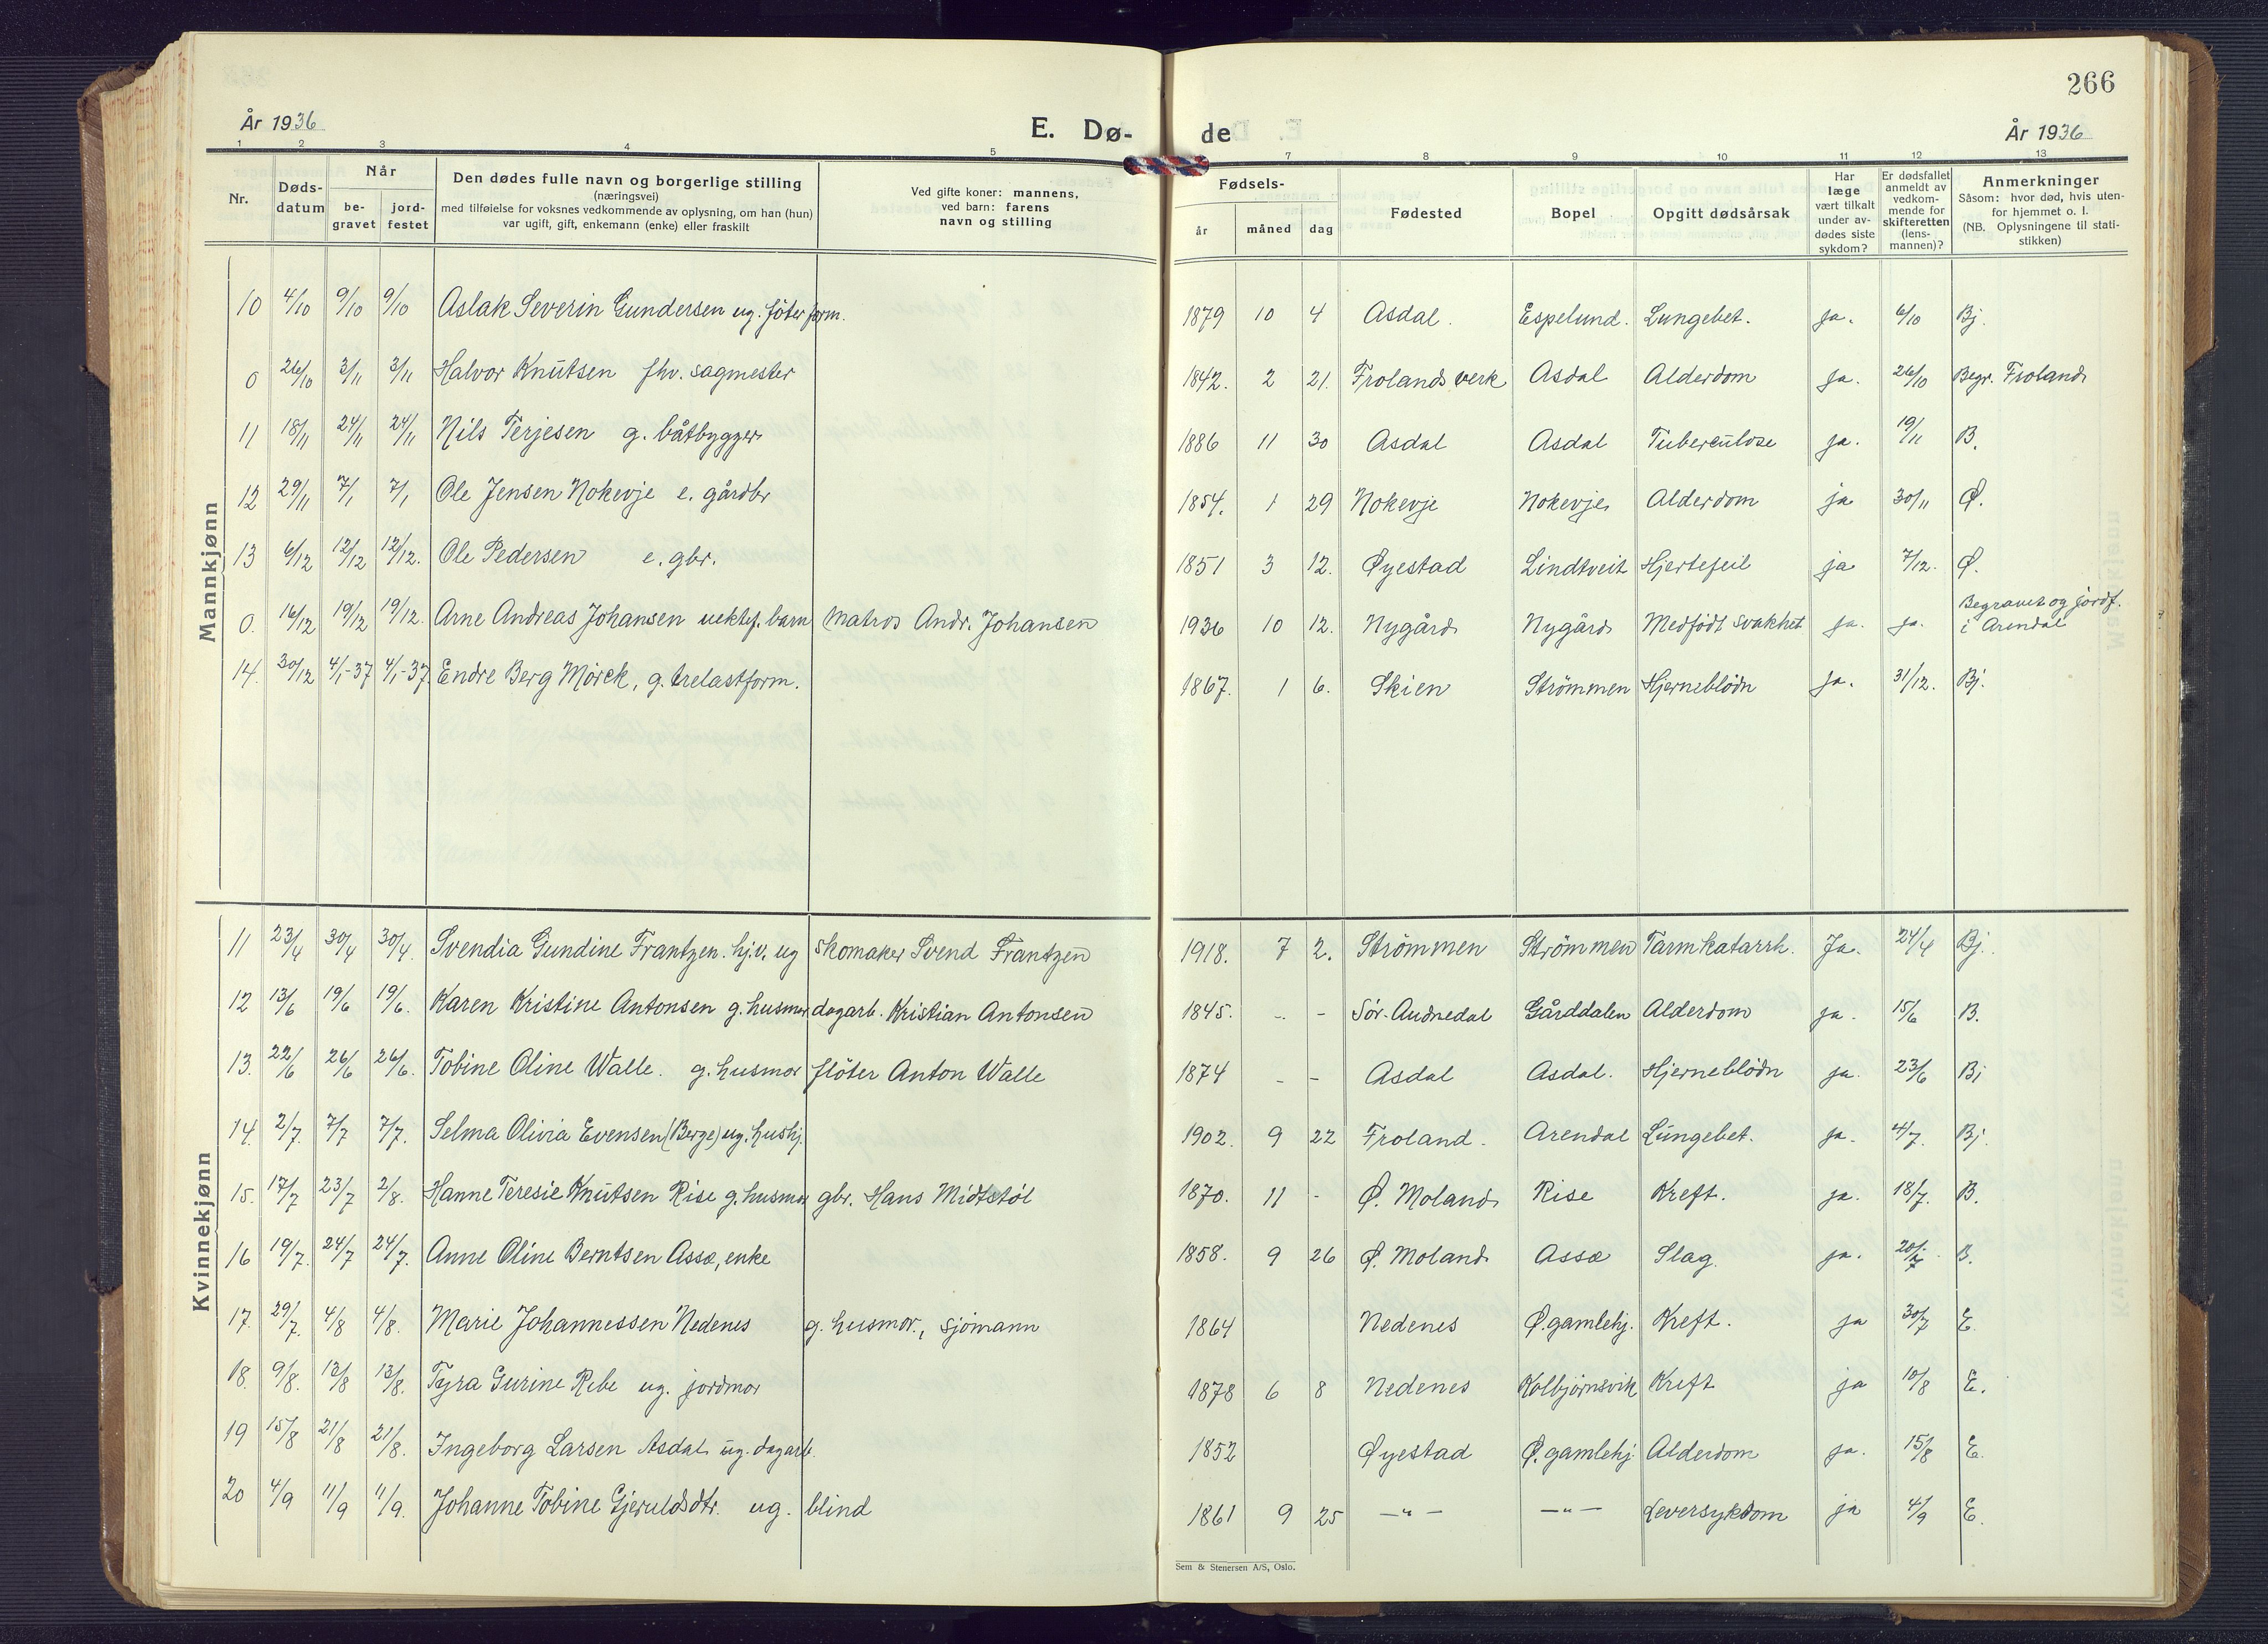 266
År 1936 E. Dø- de År 1936
1 2 3 4 5 7 8 9 10 11 12 13
Nr. Dødsdatum Når begravet jordfestet Den dødes fulle navn og borgerlige stilling (næringsvei) med tilføielse for voksnes vedkommende av oplysning, om han (hun) var ugift, gift, enkemann (enke) eller fraskilt Ved gifte koner: mannens, ved barn: farens navn og stilling Fødsels- år måned dag Fødested Bopel Opgitt dødsårsak Har læge vært tilkalt under avdødes siste sykdom? Er dødsfallet anmeldt av vedkommende for skifteretten (lensmannen)? Anmerkninger Såsom: hvor død, hvis utenfor hjemmet o. l. (NB. Oplysningene til statistikken)
Mannkjønn
10 4/10 9/10 9/10 Aslak Severin Gundersen ug. föterform. 1879 10 4 Asdal. Espelund. Lungebet. ja. 6/10 Bj.
0 26/10 3/11 3/11 Halvor Knutsen fhv. sagmester 1842. 2 21. Frolands verk Asdal Alderdom ja. 26/10 Begr. Froland
11 18/11 24/11 24/11 Nils Terjesen g. båtbygger 1886 11 30 Asdal Asdal Tuberculose ja. 19/11 B.
12 29/11 7/1 7/1 Ole Jensen Nokevje e. gårdbr 1854. 1 29 Nokevje Nokevje Alderdom ja 30/11 Ø.
13 6/12 12/12 12/12. Ole Pedersen e. gbr. 1851 3 12. Øyestad Lindtveit Hjertefeil ja 7/12. Ø.
0. 16/12 19/12 19/12. Arne Andreas Johansen uektef. barn Matros Andr. Johansen 1936 10 12. Nygård Nygård Medfödt svakhet ja. ja. Begravet og jordf. i Arendal
14. 30/12 4/1-37 4/1-37. Endre Berg Mörck, g. trelastform. 1867. 1 6. Skien Strömmen Hjerneblödn ja. 31/12. Bj.
Kvinnekjønn
11 23/4 30/4 30/4. Svendia Gundine Frantzen. hj.v. ug Skomaker Svend Frantzen 1918. 7 2. Strömmen Strömmen Tarmkatarrh. Ja. 24/4 Bj.
12 13/6 19/6 19/6. Karen Kristine Antonsen g. husmor dagarb. Kristian Antonsen 1845. - - Sör-Audnedal Gårddalen Alderdom ja. 15/6 B.
13. 22/6 26/6 26/6. Tobine Oline Walle. g. husmor flöter Anton Walle 1874 - - Asdal Asdal. Hjerneblödn ja. 23/6 Bj
14. 2/7. 7/7 7/7. Selma Olivia Evensen (Berge) ug. hushj. 1902. 9 22 Froland. Arendal Lungebet. ja. 4/7. Bj.
15. 17/7 23/7 2/8. Hanne Teresie Knutsen Rise g. husmor gbr. Hans Midtstöl 1870. 11 - Ø. Moland Rise Kreft. ja. 18/7. B.
16 19/7. 24/7 24/7. Anne Oline Berntsen Assæ, enke 1858. 9 26 Ø. Moland Assæ Slag. ja. 20/7. B.
17. 29/7. 4/8 4/8. Marie Johannessen Nedenes g. husmor., sjömann 1864 Nedenes Ø. gamlehj. Kreft. ja 30/7 E.
18. 9/8. 13/8 13/8. Tyra Gurine Ribe ug. jordmor 1878 6 8 Nedenes Kolbjörnsvik Kreft ja 10/8 E.
19 15/8 21/8 21/8. Ingeborg Larsen Asdal ug. dagarb. 1852 Øyestad Ø. gamlehj Alderdom ja. 15/8 E.
20 4/9 11/9 11/9. Johanne Tobine Gjeruldsdtr. ug. blind 1861 9 25 -"- -"- Leversykdom ja 4/9 E.
Sem & Stenersen A/S, Oslo.